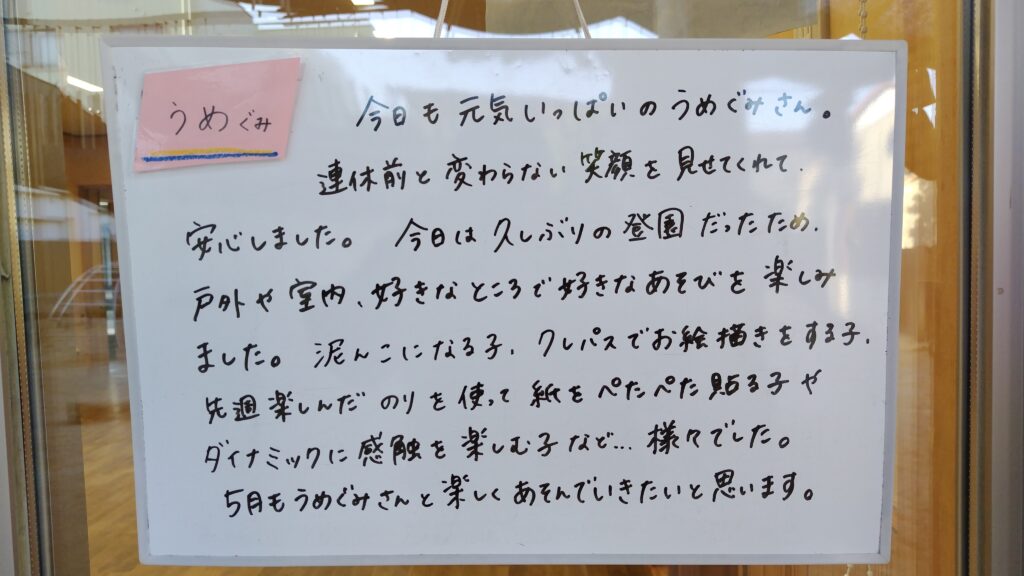 うめぐみ
今日も元気いっぱいのうめぐみさん。
連休前と変わらない笑顔を見せてくれて、
安心しました。 今日は久しぶりの登園だったため、
戸外や室内、好きなところで好きなあそびを楽しみ
ました。泥んこになる子、クレパスでお絵描きをする子、
先週楽しんだのりを使って紙をぺたぺた貼る子や
ダイナミックに感触を楽しむ子など…様々でした。
5月もうめぐみさんと楽しくあそんでいきたいと思います。